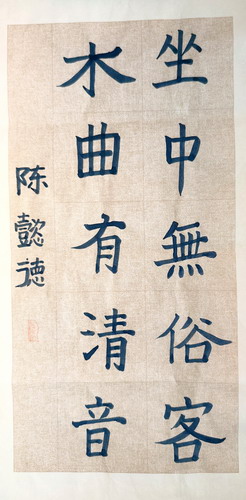 坐中無俗客
木曲有清音
陈懿德